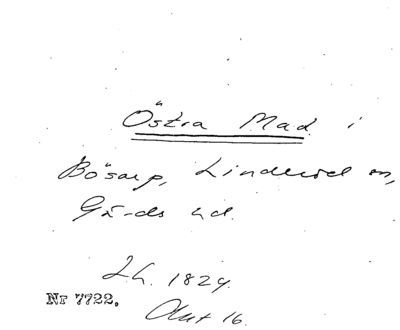 Östra Mad i
Bösarp, Linderöd sn,
Gärds hd.
Lh. 1829.
Nr 7722.
Akt 16.